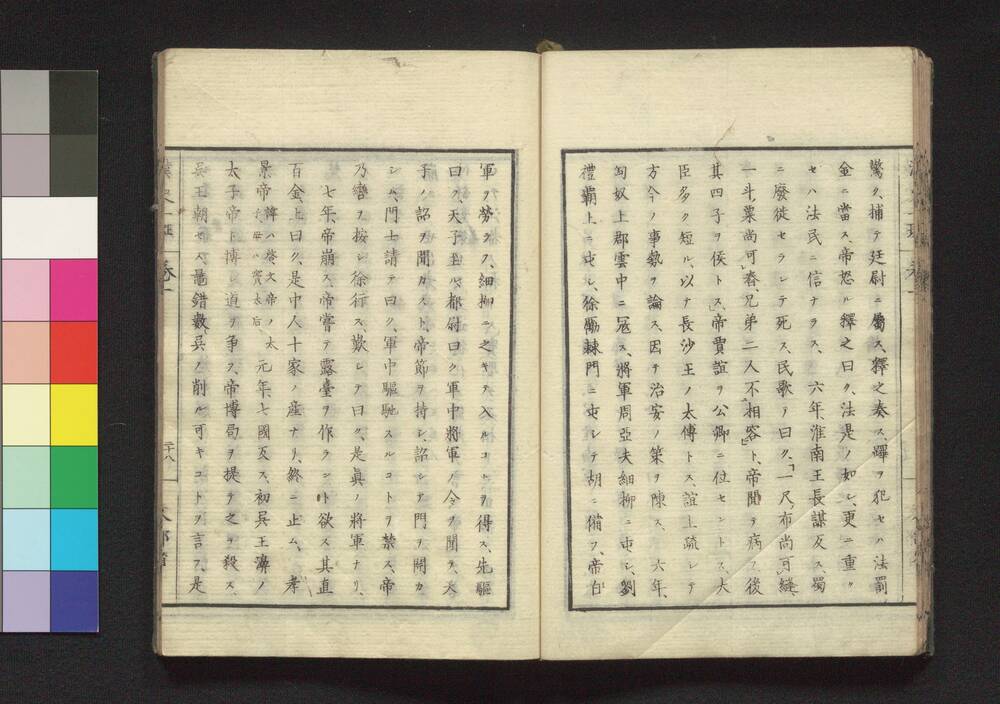 驚ク、捕テ廷尉ニ屬ス、釋之奏ス、蹕ヲ犯セハ法罰
金ニ當ス、帝怒ル釋之曰ク、法是ノ如シ、更ニ重ク
セハ法民ニ信ナラス、　六年、淮南王長謀反ス、蜀
ニ廢徙セラレテ死ス、民歌ノ曰ク、「一尺ノ布尚可縫、
一斗ノ粟尚可舂、兄弟二人不相容」ト、帝聞テ病フ、後
其四子ヲ侯トス、帝賈誼ヲ公卿ニ位セントス、大
臣多ク短ル、以テ長沙王ノ太傅トス、誼上疏シテ
方今ノ事勢ヲ論ス、因テ治安ノ策ヲ陳ス、　六年、
匈奴上郡雲中ニ冦ス、將軍周亞夫細柳ニ屯シ、劉
禮霸上ニ屯シ、徐厲棘門ニ屯シテ胡ニ備フ、帝自
軍ヲ勞ラフ、細柳ニ之キテ入ルコトヲ得ス、先驅
曰ク、天子且ニ都尉曰ク軍中將軍ノ令ヲ聞テ、天
子ノ詔ヲ聞カスト、帝節ヲ持シ、詔シテ門ヲ開カ
シム、門士請テ曰ク、軍中驅馳スルコトヲ禁ス、帝
乃轡ヲ按シ徐行ス、歎シテ曰ク、是眞ノ將軍ナリ、
七年、帝崩ス、帝嘗テ露臺ヲ作ラント欲ス其直
百金、上曰ク、是中人十家ノ産ナリ、終ニ止ム、　孝
景帝 諱ハ啓文帝ノ太子母ハ竇太后 元年、七國反ス、初呉王濞ノ
太子帝ト博シ道ヲ爭フ、帝博局ヲ提テ之ヲ殺ス、
呉王朝セス鼂錯數、呉ノ削ル可キコトヲ言フ、是
二十八